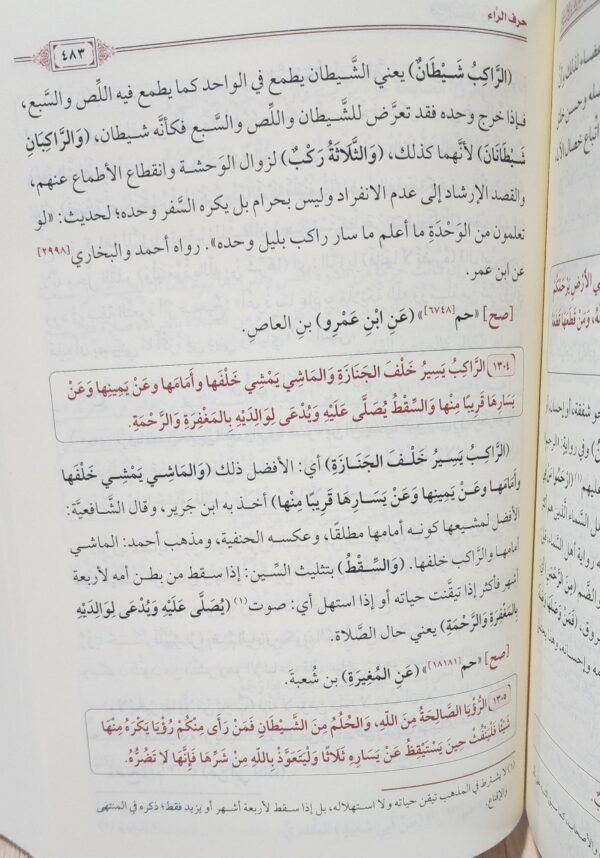 حرف الراء
٤٨٣
(الرَّاكِبُ شَيْطَانٌ) يعني الشَّيطان يطمع في الواحد كما يطمع فيه اللِّص والسَّبع،
فإذا خرج وحده فقد تعرَّض للشَّيطان واللِّص والسَّبع فكأنَّه شيطان، (وَالرَّاكِبَانِ
شَيْطَانَانَ) لأنَّهما كذلك، (وَالثَّلَاثَةُ رَكْبٌ) لزوال الوَحشة وانقطاع الأطماع عنهم،
والقصد الإرشاد إلى عدم الانفراد وليس بحرام بل يكره السَّفر وحده؛ لحديث: «لو
تعلمون من الوَحْدَةِ ما أعلم ما سار راكب بليل وحده». رواه أحمد والبخاري[٢٩٩٨]
عن ابن عمر.
[صح] «حم[٦٧٤٨]» (عَنِ ابْنِ عَمْرِو) بنِ العاصِ.
١٣٠٤ الرَّاكِبُ يَسِيرُ خَلْفَ الجَنَازَةِ وَالمَاشِي يَمْشِي خَلْفَها وأَمَامَها وعَنْ يَمِينِها وَعَنْ
يَسَارِهَا قَرِيبًا مِنْها وَالسِّقْطُ يُصَلَّى عَلَيْهِ وَيُدْعَى لِوَالِدَيْهِ بِالمَغْفِرَةِ وَالرَّحْمَةِ.
(الرَّاكِبُ يَسِيرُ خَلْفَ الجَنَازَةِ) أي: الأفضل ذلك (وَالمَاشِي يَمْشِي خَلْفَهَا
وأَمَامَهَا وعَنْ يَمِينِها وَعَنْ يَسَارِهَا قَرِيبًا مِنْها) أخذ به ابن جَرِير، وقال الشَّافعيَّة:
الأفضل لمشيعها كونه أمامها مطلقًا، وعكسه الحنفية، ومذهب أحمد: الماشي
أمامها والرَّاكب خلفها. (وَالسِّقْطُ) بتثليث السِّين: إذا سقط من بطن أمه لأربعة
أشهر فأكثر إذا تيقَّنت حياته أو إذا استهل أي: صوت(١) (يُصَلَّى عَلَيْهِ وَيُدْعَى لِوَالِدَيْهِ
بِالمَغْفِرَةِ وَالرَّحْمَةِ) يعني حال الصَّلاة.
[صح] «حم[١٨١٨١]» (عَنِ المُغِيرَةِ) بن شُعبةَ.
١٣٠٥ الرُّؤْيَا الصَّالِحَةُ مِنَ اللهِ، وَالحُلُمُ مِنَ الشَّيْطَانِ فَمَنْ رَأَى مِنْكُمْ رُؤْيَا يَكْرَهُ مِنْهَا
شَيْئًا فَلْيَنْفُثْ حِينَ يَسْتَيْقِظُ عَنْ يَسَارِهِ ثَلَاثًا وَلْيَتَعَوَّذْ بِاللهِ مِنْ شَرِّهَا فَإِنَّهَا لَا تَضُرُّهُ.
(١) لا يشترط في المذهب تيقن حياته ولا استهلاله، بل إذا سقط لأربعة أشهر أو يزيد فقط؛ ذكره في المنتهى
والإقناع.